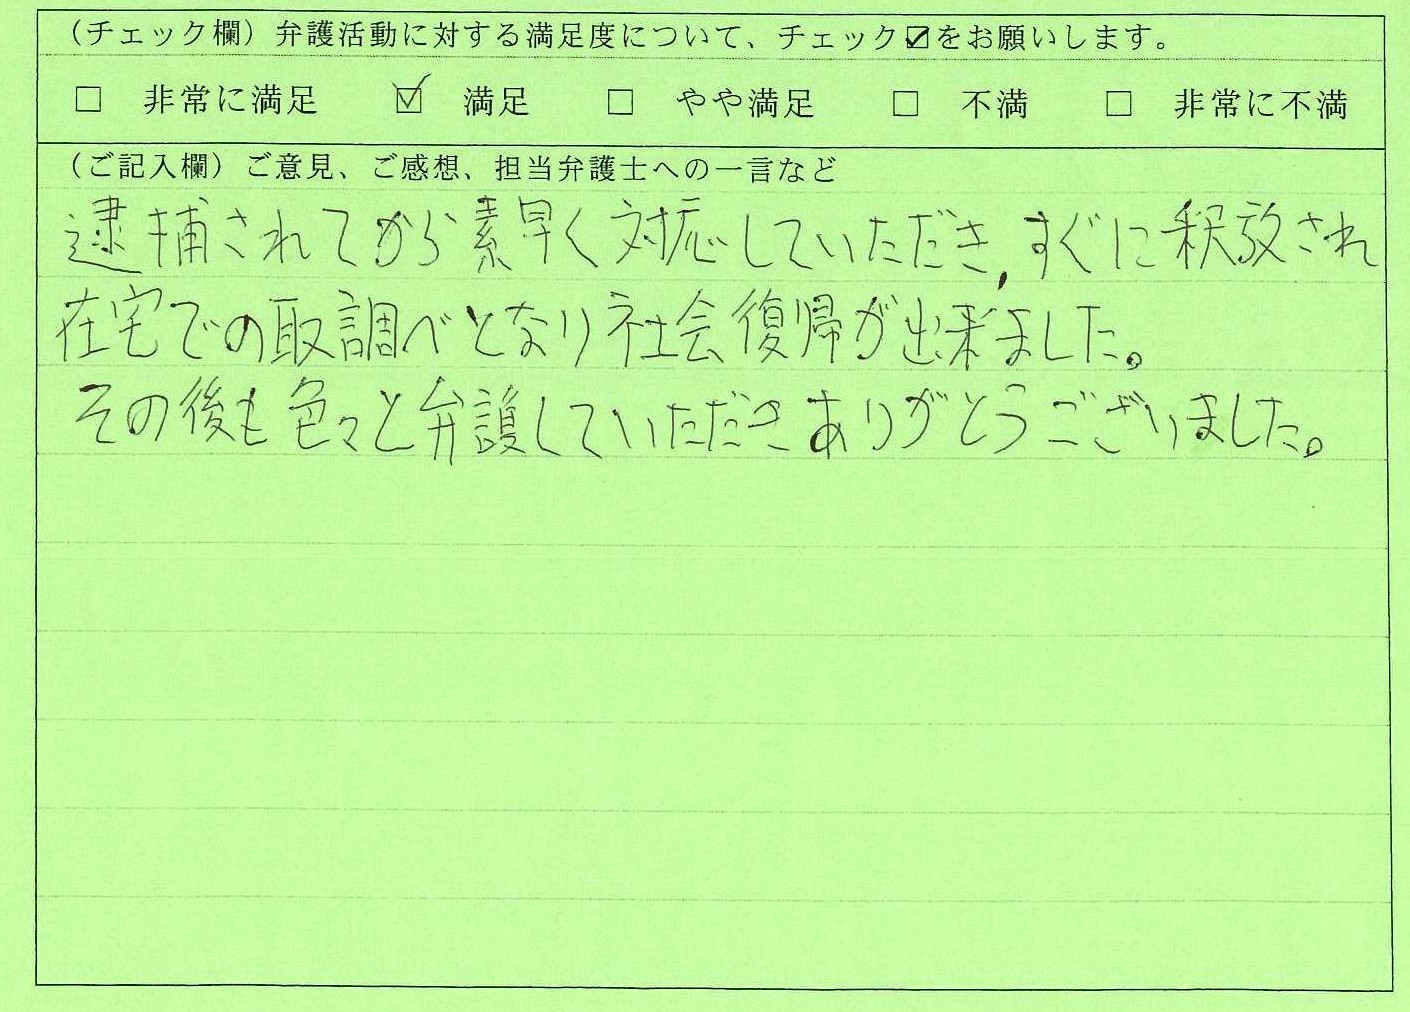 (チェック欄)弁護活動に対する満足度について、チェック☑をお願いします。
□ 非常に満足 ☑ 満足 □ やや満足 □ 不満 □ 非常に不満
(ご記入欄)ご意見、ご感想、担当弁護士への一言など
逮捕されてから素早く対応していただき,すぐに釈放され
在宅での取調べとなり社会復帰が出来ました。
その後も色々と弁護していただきありがとうございました。